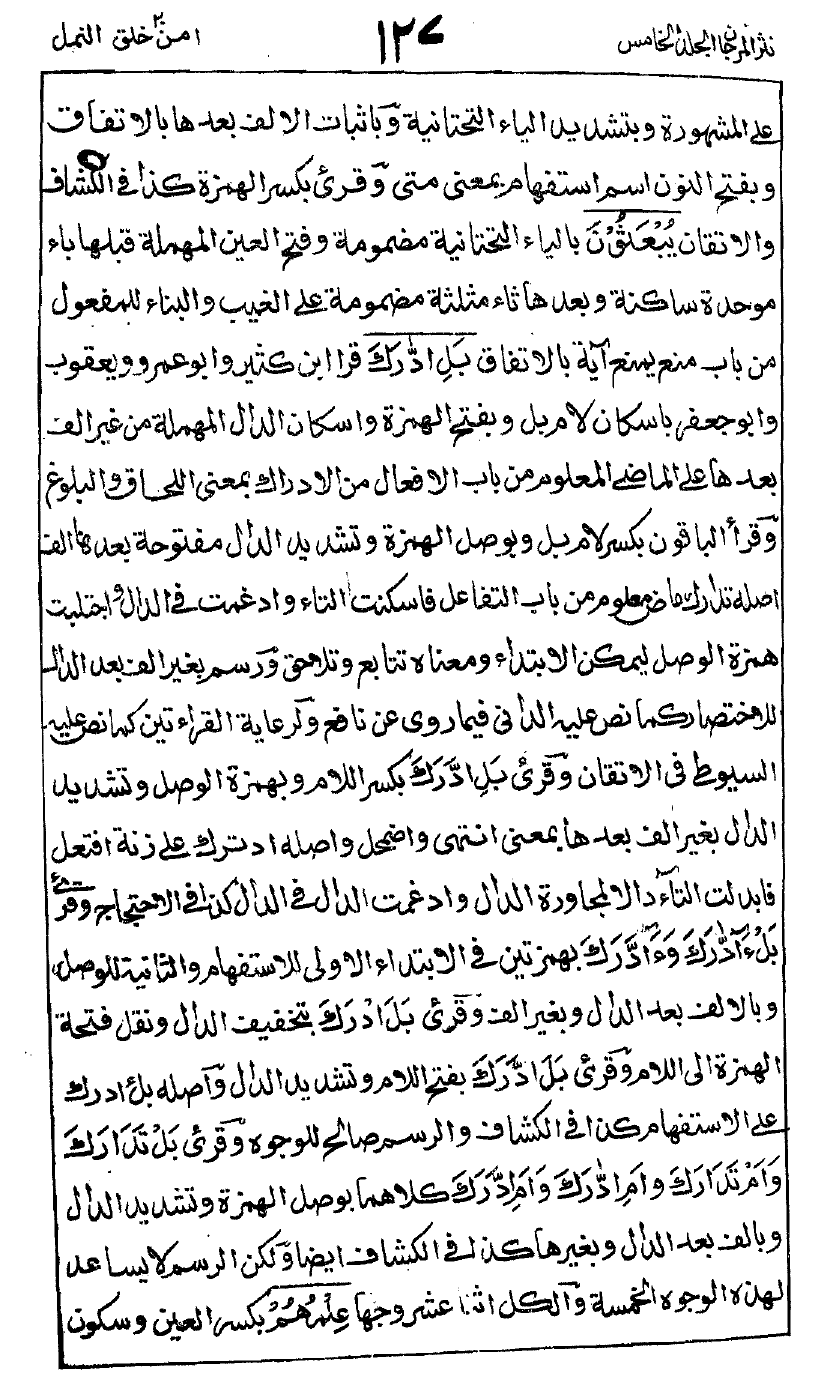 نثر المرجان المجلد الخامس
١٢٧
امن خلق ٢٠ النمل
على المشهورة وبتشديد الياء التحتانية وباثبات الالف بعدها بالاتفاق
وبفتح النون اسم استفهام بمعنى متى وقرئ بكسر الهمزة كذا في الكشاف
والاتقان يُبْعَثُوْنَ بالياء التحتانية مضمومة وفتح العين المهملة قبلها باء
موحدة ساكنة وبعدها ثاء مثلثة مضمومة على الغيب والبناء للمفعول
من باب منع يمنع آية بالاتفاق بَلِ ادّٰرَكَ قرا ابن كثير وابو عمرو ويعقوب
وابو جعفر باسكان لام بل وبفتح الهمزة واسكان الدال المهملة من غير الف
بعدها على الماضي المعلوم من باب الافعال من الادراك بمعنى اللحاق والبلوغ
وقرأ الباقون بكسر لام بل وبوصل الهمزة وتشديد الدال مفتوحة بعدها الف
اصله تدارك ماض معلوم من باب التفاعل فاسكنت التاء وادغمت في الدال واجتلبت
همزة الوصل ليمكن الابتداء ومعناه تتابع وتلاحق ورسم بغير الف بعد الدال
للاختصار كما نص عليه الداني فيما روى عن نافع ولرعاية القراءتين كما نص عليه
السيوطي في الاتقان وقرئ بَلِ ادَّرَكَ بكسر اللام وبهمزة الوصل وتشديد
الدال بغير الف بعدها بمعنى انتهى واضمحل واصله ادترك على زنة افتعل
فابدلت التاء دالا لمجاورة الدال وادغمت الدال في الدال كذا في الاحتجاج وقرئ
بَلْ ءَآدّٰرَكَ وَءَآدَّرَكَ بهمزتين في الابتداء الاولى للاستفهام والثانية للوصل
وبالالف بعد الدال وبغير الف وقرئ بَلَ ادْرَكَ بتخفيف الدال ونقل فتحة
الهمزة الى اللام وقرئ بَلَ ادَّرَكَ بفتح اللام وتشديد الدال وآصله بل ءادرك
على الاستفهام كذا في الكشاف والرسم صالح للوجوه وقرئ بَلْ تَدَارَكَ
وَاَمْ تَدَارَكَ وامِ ادّٰرَكَ وَاَمِ ادَّرَكَ كلاهما بوصل الهمزة وتشديد الدال
وبالف بعد الدال وبغيرها كذا في الكشاف ايضا ولكن الرسم لا يساعد
لهذه الوجوه الخمسة والكل اثنا عشر وجها عِلْمُهُمْ بكسر العين وسكون